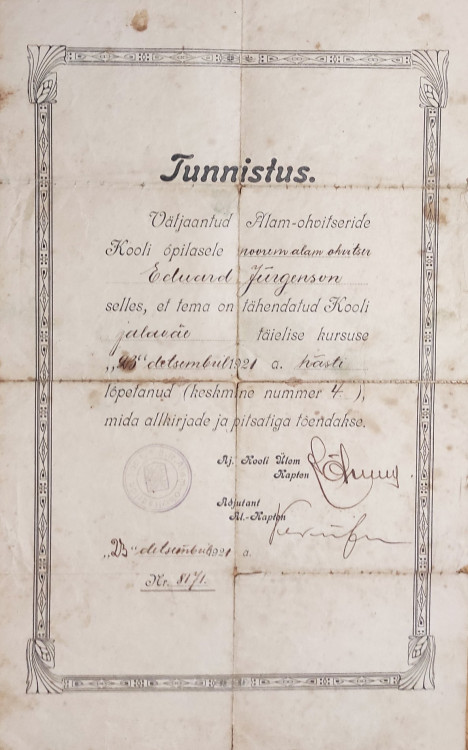 Tunnistus.
Väljaantud Alam-ohvitseride
Kooli õpilasele noorem alam ohvitser
Eduard Jürgenson
selles, et tema on tähendatud Kooli
jalaväe täielise kursuse
„23" detsembril 1921 a. hästi
lõpetanud (keskmine nummer 4),
mida allkirjade ja pitsatiga tõendakse.
Aj. Kooli Ülem
Kapten
Adjutant
Al.-Kapten
„23" detsembril 1921 a.
Nr. 8171.